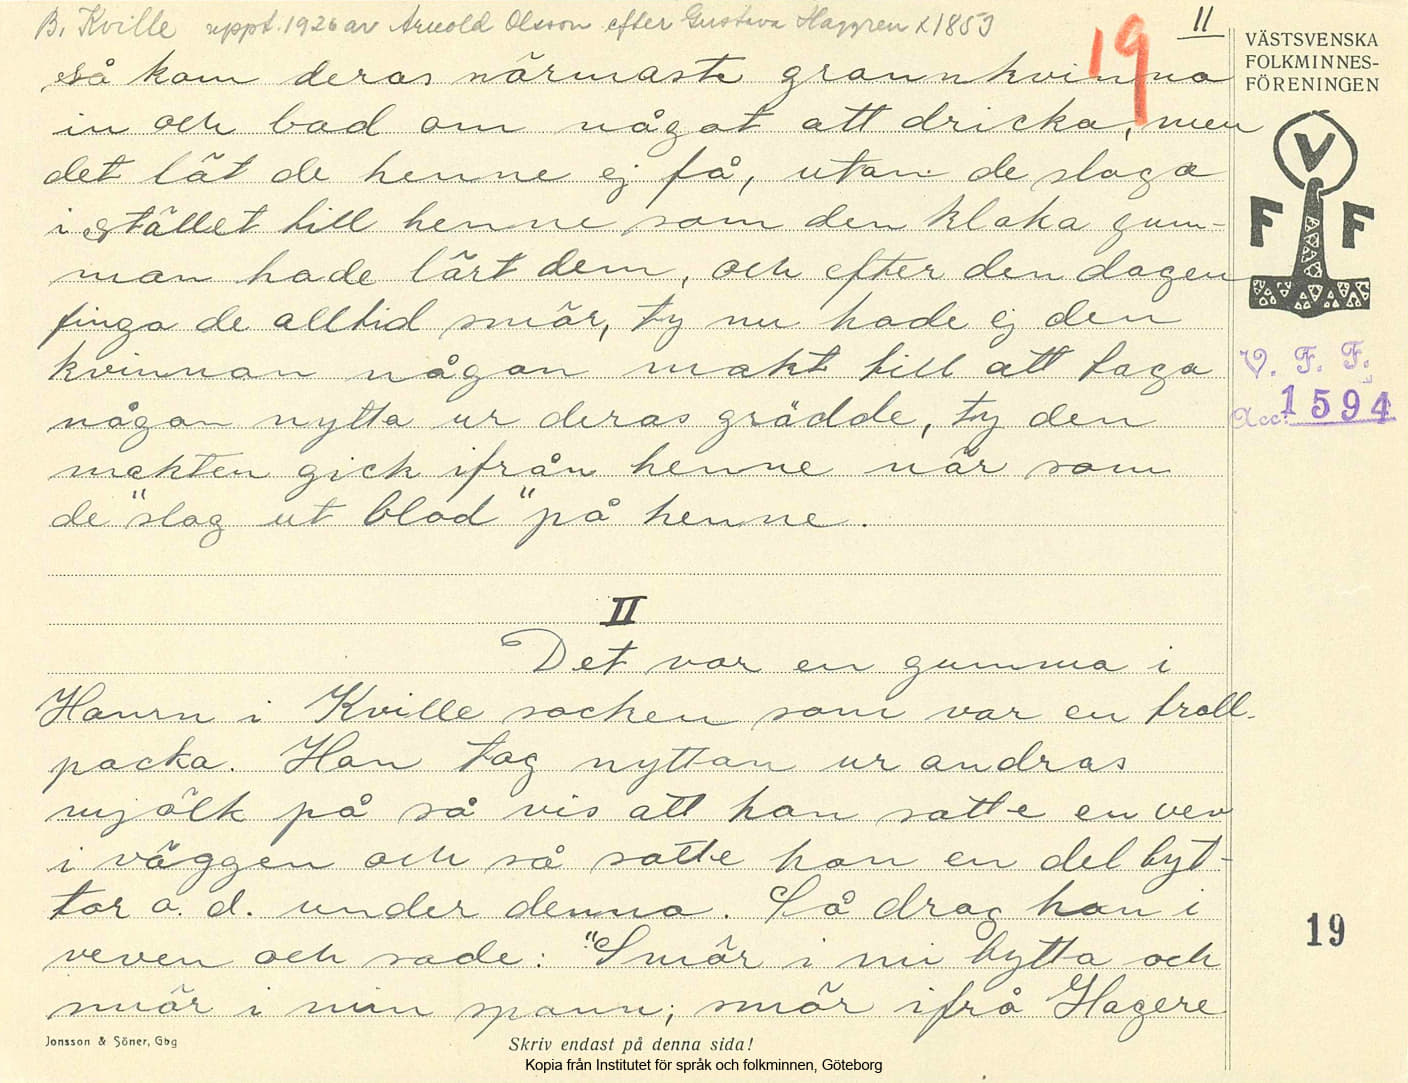 B. Kville uppt. 1926 av Arnold Olsson efter Gustava Haggren f. 1853
11
19
VÄSTSVENSKA
FOLKMINNES-
FÖRENINGEN
så kom deras närmaste grannkvinna
in och bad om något att dricka, men
det lät de henne ej få, utan de sloga
i stället till henne som den kloka gum-
man hade lärt dem, och efter den dagen
finga de alltid smör, ty nu hade ej den
kvinnan någon makt till att taga
någon nytta ur deras grädde, ty den
makten gick ifrån henne när som
de "slog ut blod" på henne.
V
F F
V. F. F.
Acc. 1594
II
Det var en gumma i
i Kville socken som var en troll-
packa. Hon tog nyttan ur andras
mjölk på så vis att hon satte en vev
i väggen och så satte hon en del byt-
tor o. d. under denna. Så drog hon i
veven och sade: "Smör i min bytta och
smör i min spann; smör ifrå Hagere
19
Jonsson & Söner, Gbg
Skriv endast på denna sida!
Kopia från Institutet för språk och folkminnen, Göteborg